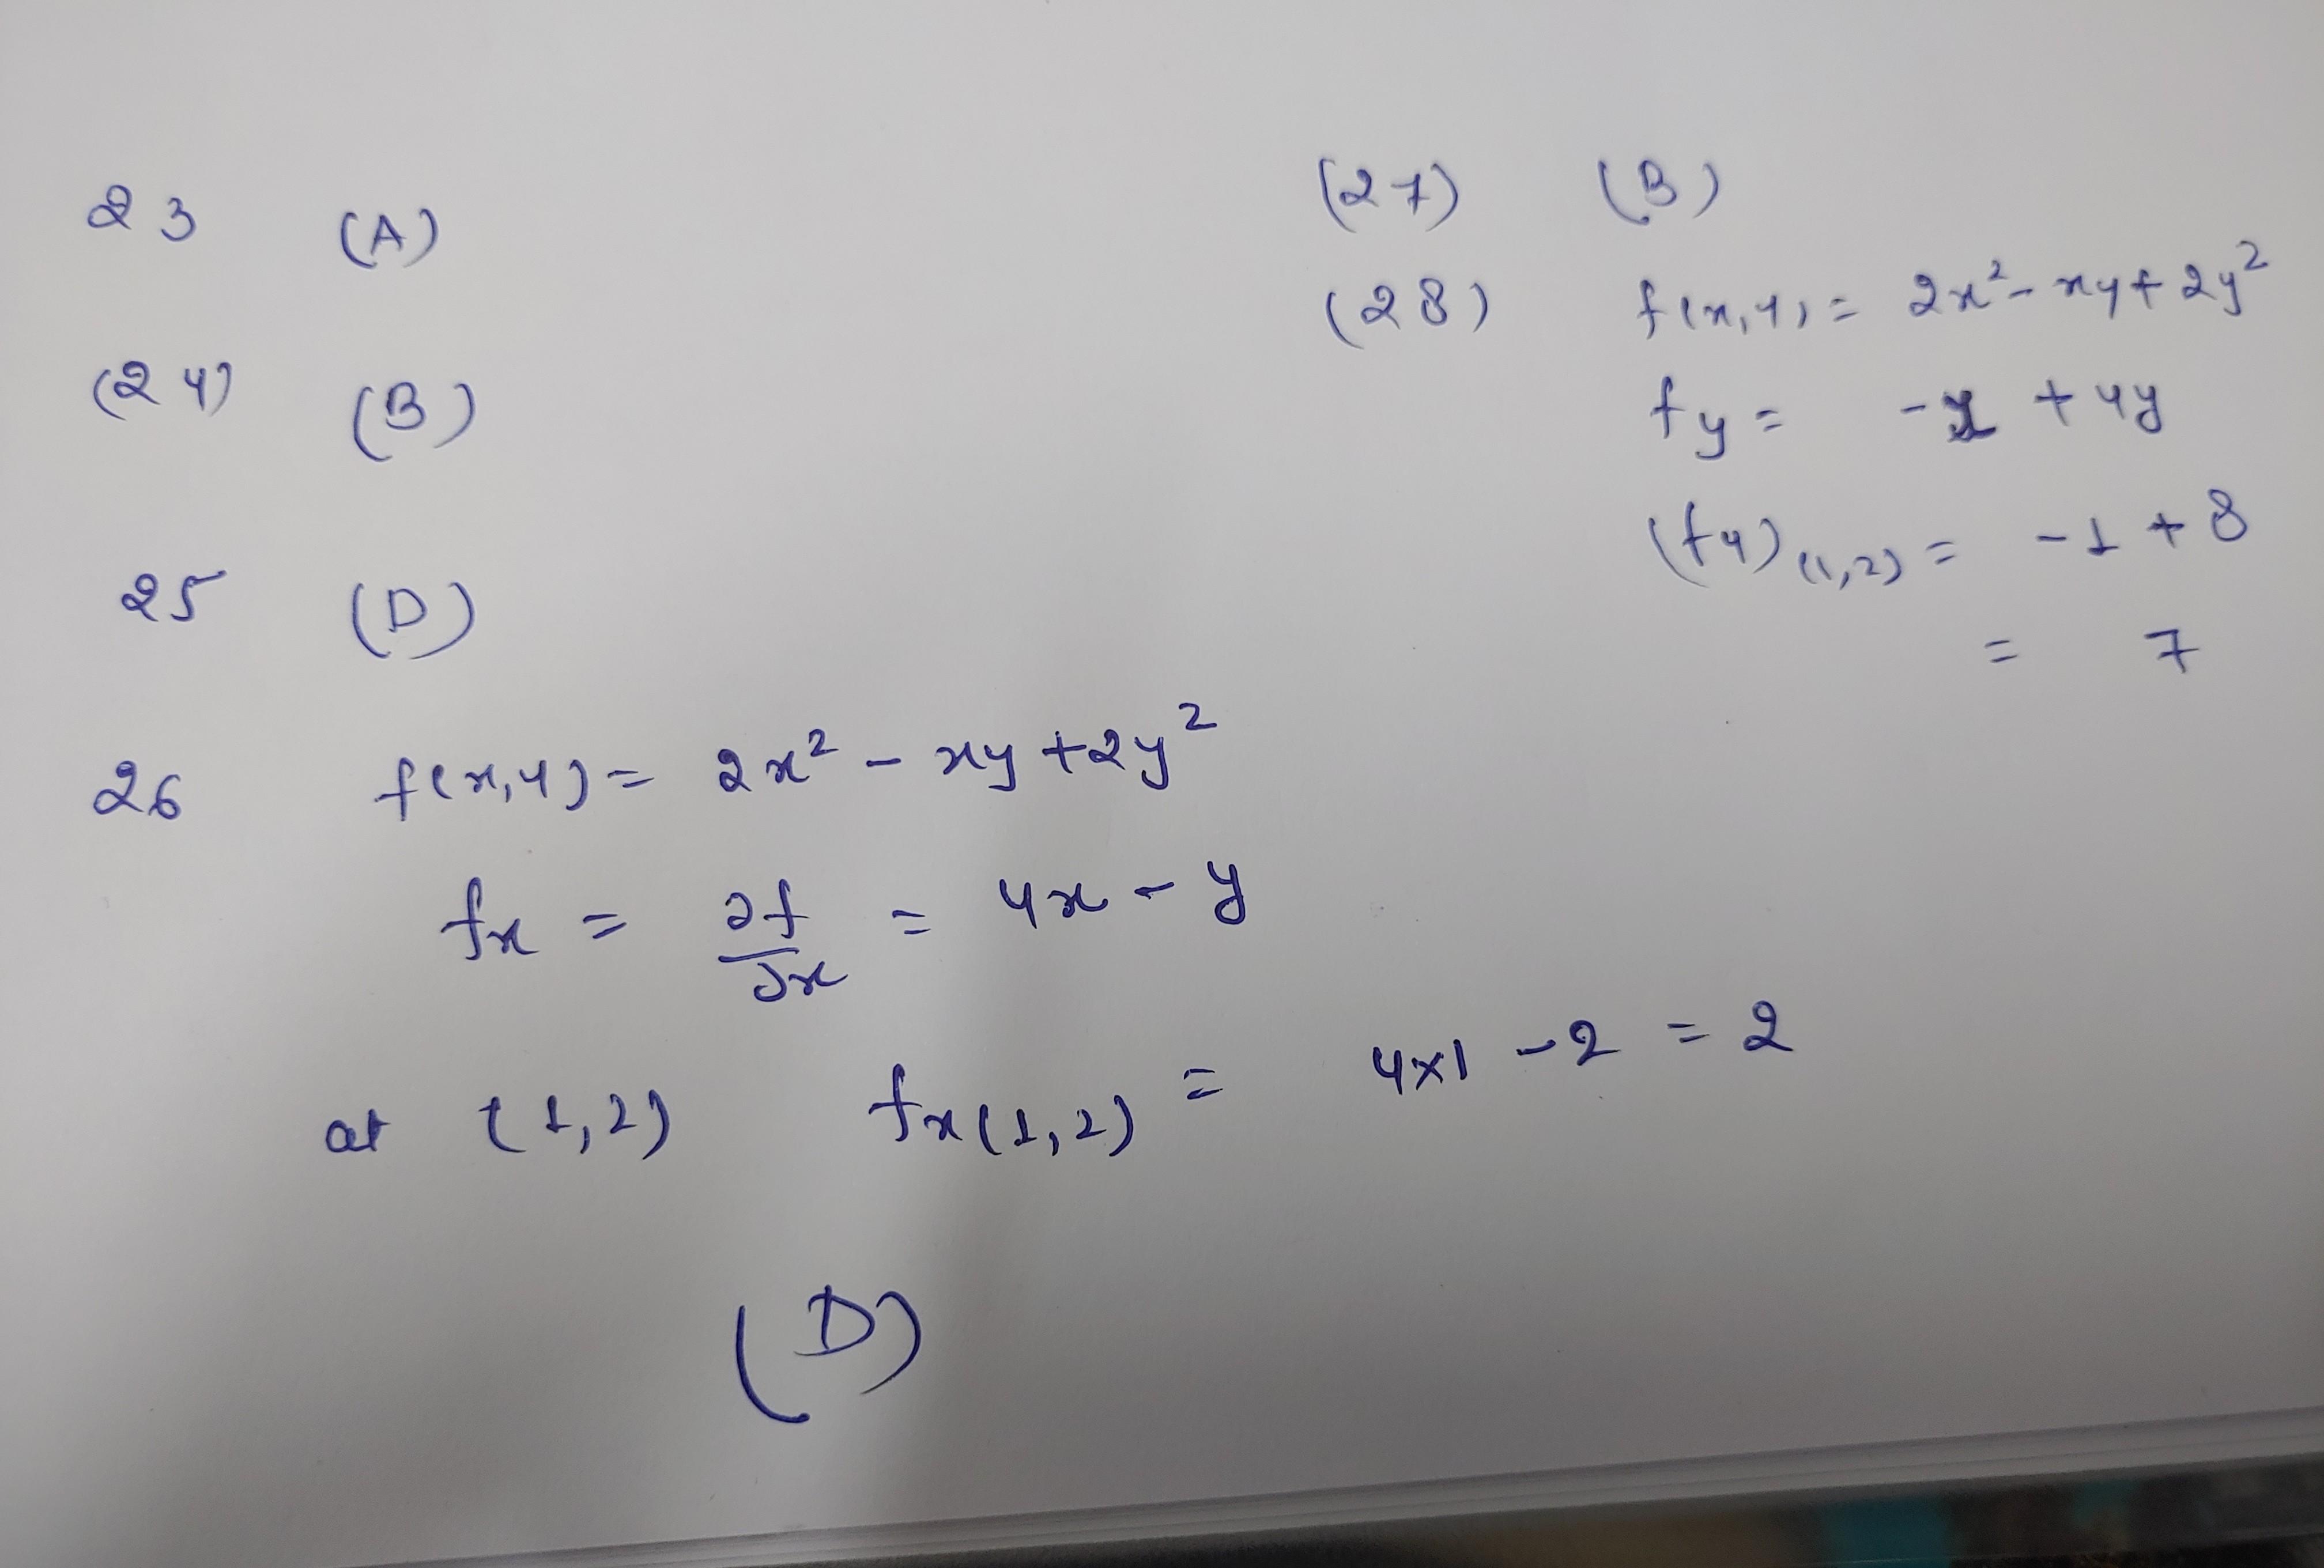 23 (A)
(24) (B)
25 (D)
26 f(x,y) = 2x² - xy + 2y²
fx = ∂f/∂x = 4x - y
at (1,2) fx(1,2) = 4×1 - 2 = 2
(D)
(27) (B)
(28) f(x,y) = 2x² - xy + 2y²
fy = -x + 4y
(fy)(1,2) = -1 + 8
= 7